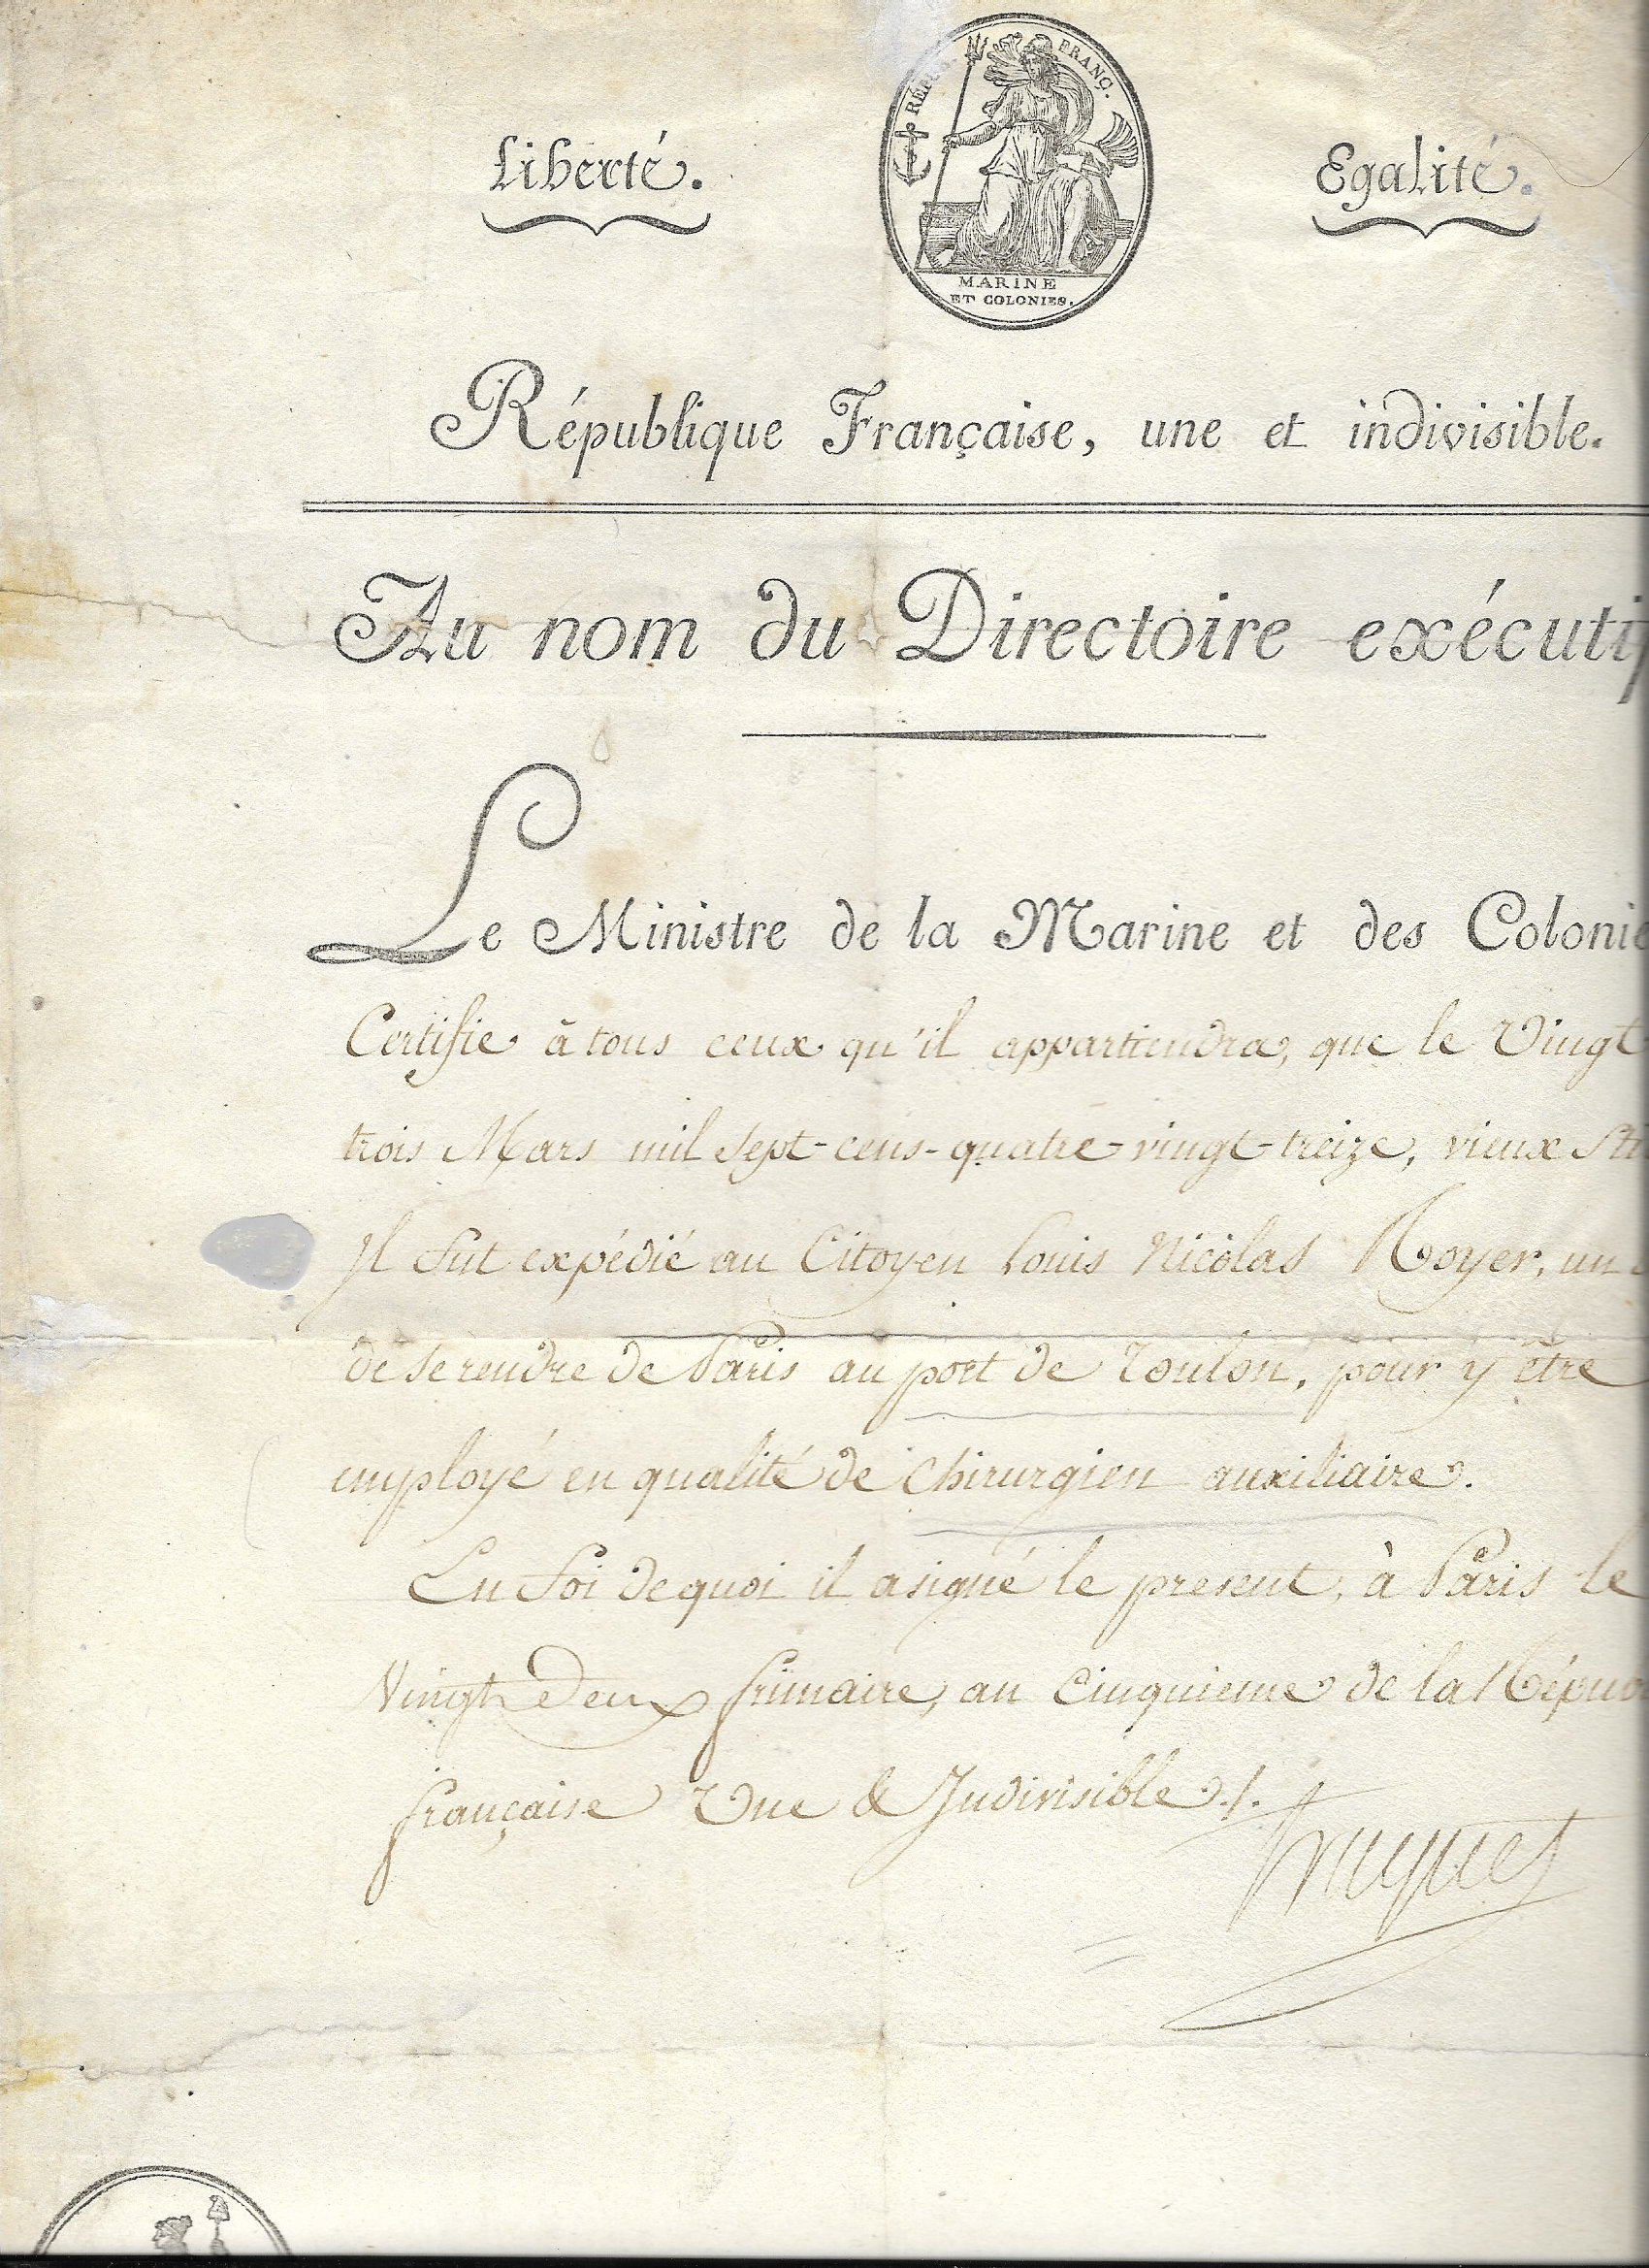 RÉPUB. FRANÇ.
MARINE
ET COLONIES.
Liberté. Egalité.
République Française, une et indivisible.
Au nom du Directoire exécuti
Le Ministre de la Marine et des Colonie
Certifie à tous ceux qu'il appartiendra, que le Vingt
trois Mars mil Sept-cens-quatre-vingt-treize, vieux Sti
Il fut expédié au Citoyen Louis Nicolas Royer, un
de Se rendre de Paris au port de Toulon, pour y être
employé en qualité de Chirurgien auxiliaire.
En foi de quoi il a signé le present, à Paris le
Vingt Deux frimaire, an Cinquieme de la Répu
française Une & Indivisible ./.
Truguet